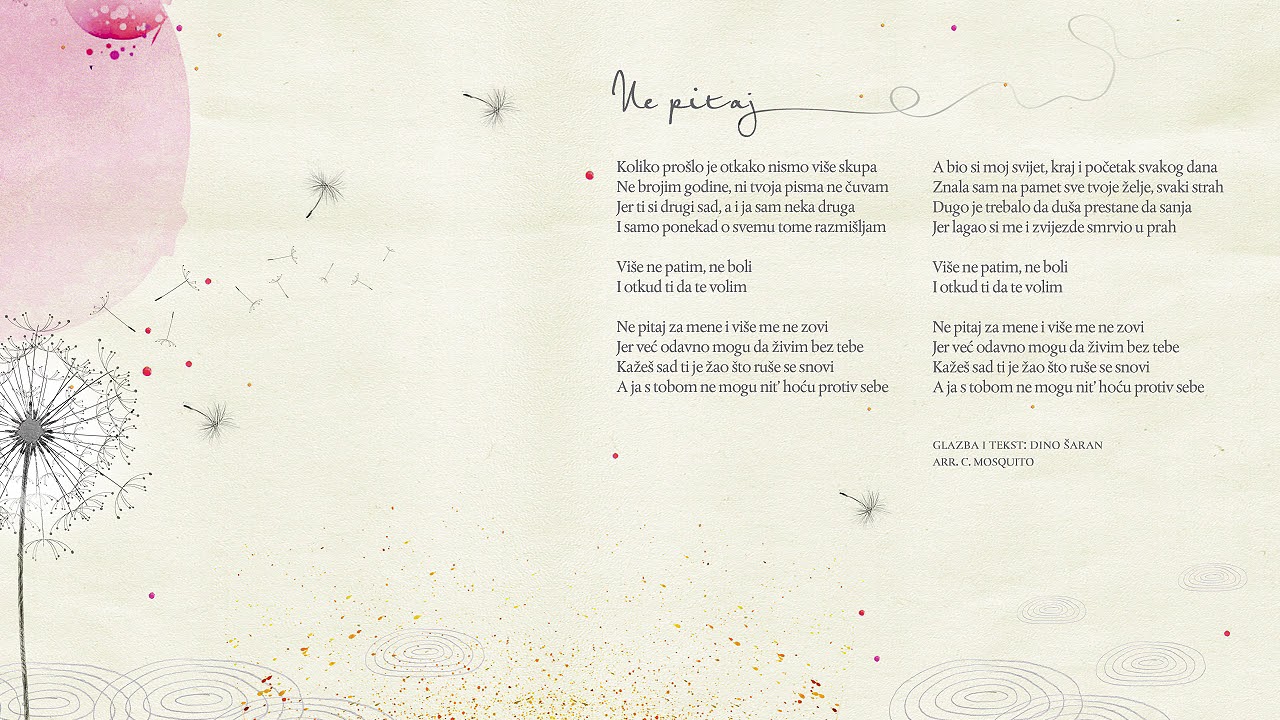 Ne pitaj
Koliko prošlo je otkako nismo više skupa
Ne brojim godine, ni tvoja pisma ne čuvam
Jer ti si drugi sad, a i ja sam neka druga
I samo ponekad o svemu tome razmišljam
Više ne patim, ne boli
I otkud ti da te volim
Ne pitaj za mene i više me ne zovi
Jer već odavno mogu da živim bez tebe
Kažeš sad ti je žao što ruše se snovi
A ja s tobom ne mogu nit' hoću protiv sebe
A bio si moj svijet, kraj i početak svakog dana
Znala sam na pamet sve tvoje želje, svaki strah
Dugo je trebalo da duša prestane da sanja
Jer lagao si me i zvijezde smrvio u prah
Više ne patim, ne boli
I otkud ti da te volim
Ne pitaj za mene i više me ne zovi
Jer već odavno mogu da živim bez tebe
Kažeš sad ti je žao što ruše se snovi
A ja s tobom ne mogu nit' hoću protiv sebe
GLAZBA I TEKST: DINO ŠARAN
ARR. C. MOSQUITO